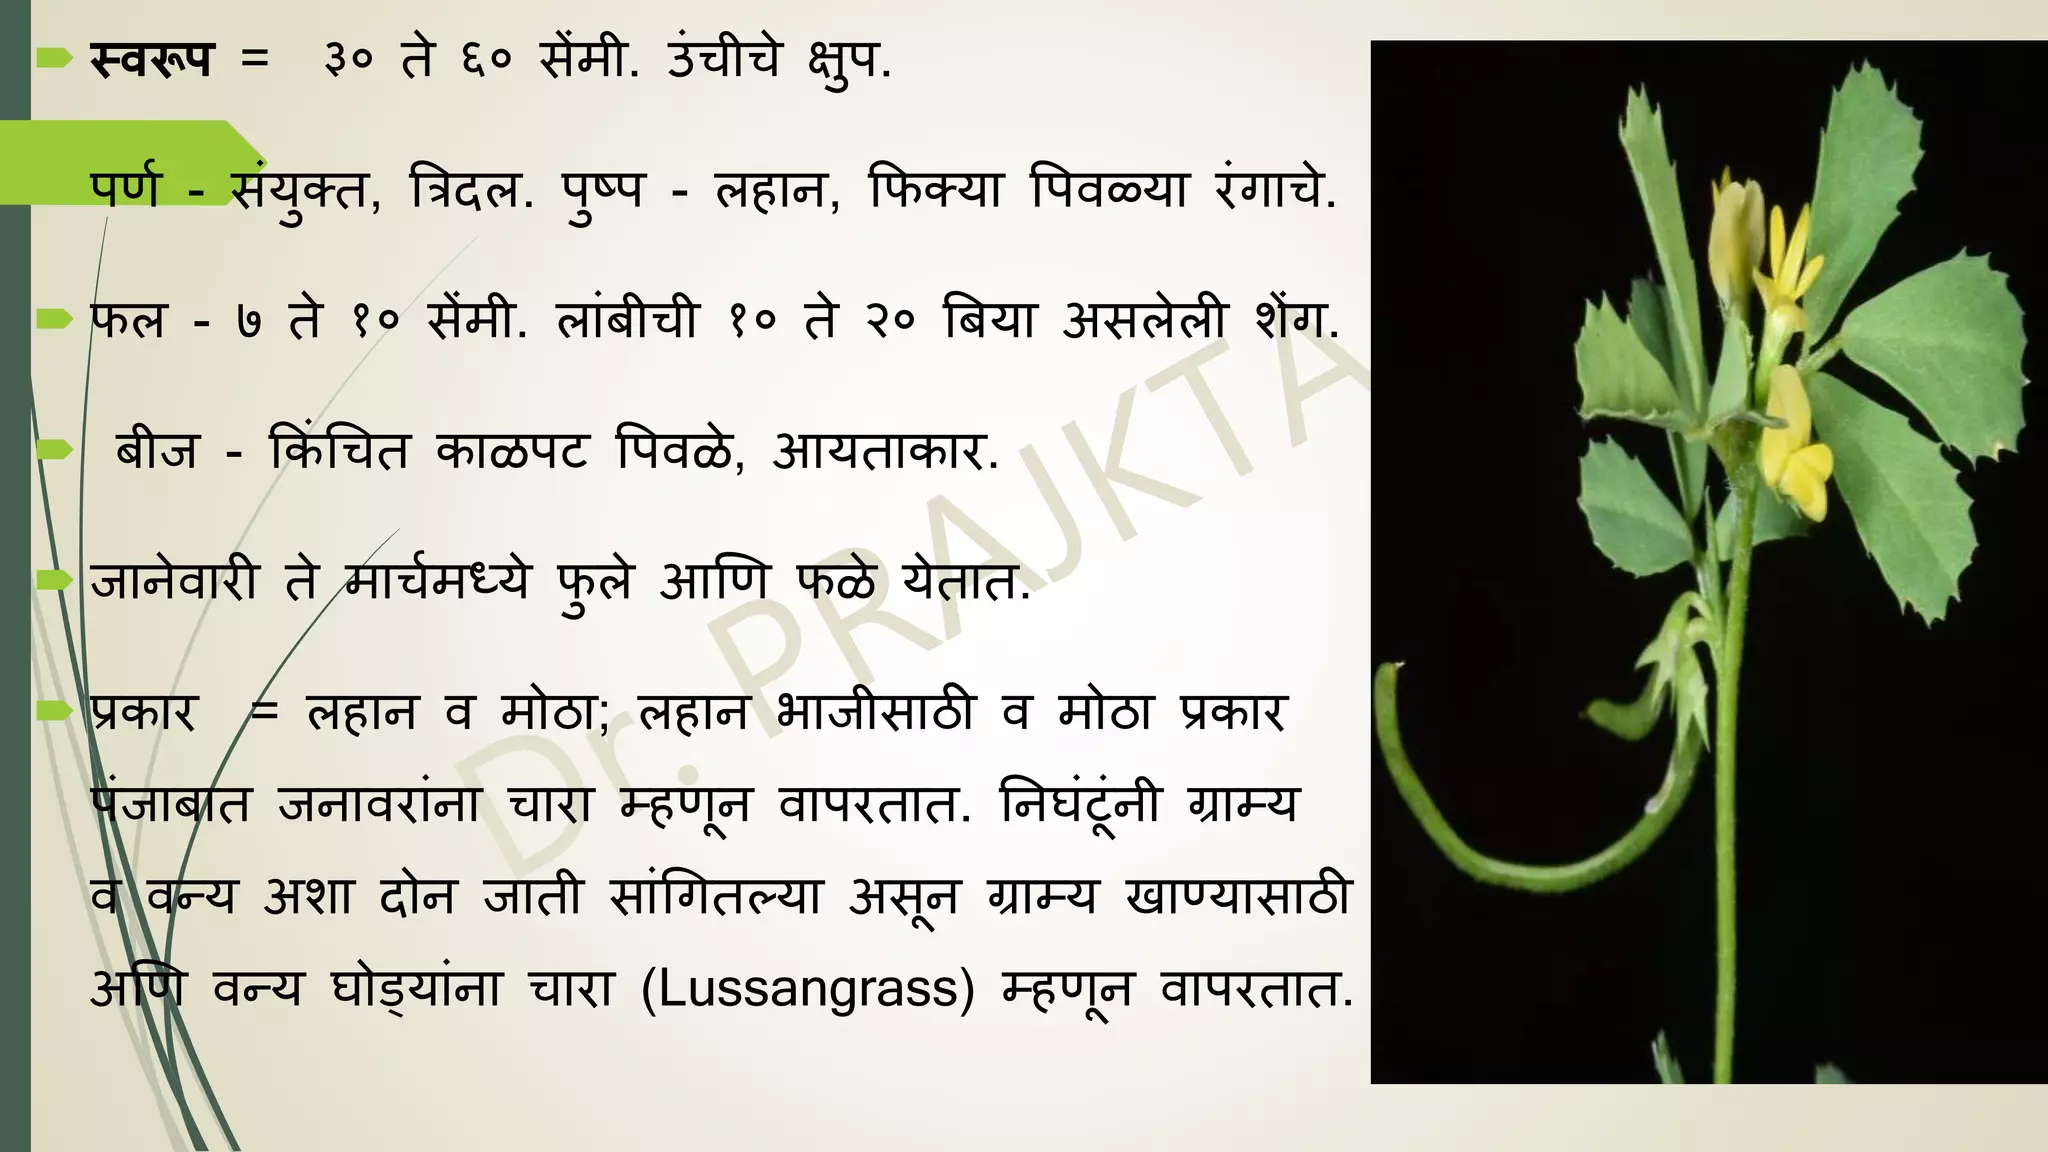 स्वरूप = ३० ते ६० सेंमी. उंचीचे क्षुप.
पर्ण - संयुक्त, त्रिदल. पुष्प - लहान, फिक्या पिवळ्या रंगाचे.
फल - ७ ते १० सेंमी. लांबीची १० ते २० बिया असलेली शेंग.
बीज - किंचित काळपट पिवळे, आयताकार.
जानेवारी ते मार्चमध्ये फुले आणि फळे येतात.
प्रकार = लहान व मोठा; लहान भाजीसाठी व मोठा प्रकार
पंजाबात जनावरांना चारा म्हणून वापरतात. निघंटूंनी ग्राम्य
व वन्य अशा दोन जाती सांगितल्या असून ग्राम्य खाण्यासाठी
अणि वन्य घोड्यांना चारा (Lussangrass) म्हणून वापरतात.
Dr. PRAJKTA